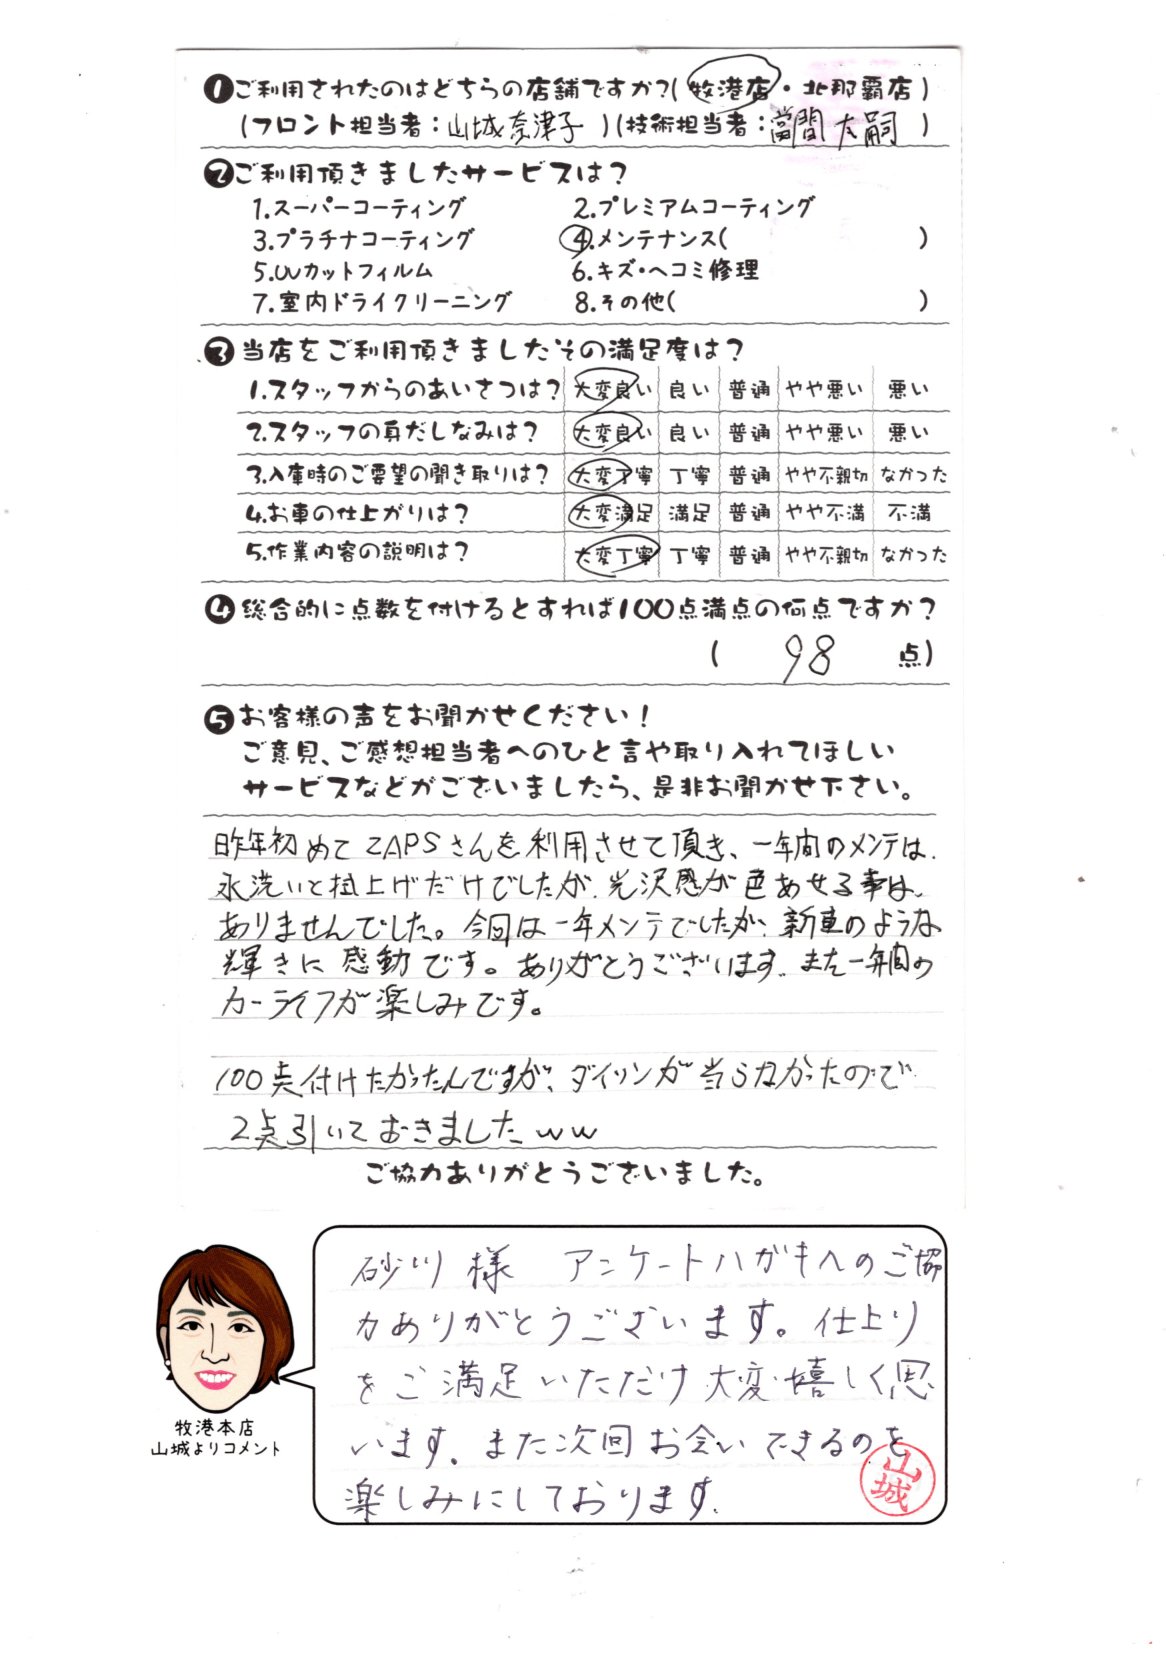 ❶ご利用されたのはどちらの店舗ですか?(牧港店・北那覇店)
(フロント担当者:山城奈津子)(技術担当者:當間大嗣)
❷ご利用頂きましたサービスは?
1.スーパーコーティング 2.プレミアムコーティング
3.プラチナコーティング 4.メンテナンス( )
5.UVカットフィルム 6.キズ・ヘコミ修理
7.室内ドライクリーニング 8.その他( )
❸当店をご利用頂きましたその満足度は?
1.スタッフからのあいさつは? 大変良い 良い 普通 やや悪い 悪い
2.スタッフの身だしなみは? 大変良い 良い 普通 やや悪い 悪い
3.入庫時のご要望の聞き取りは? 大変丁寧 丁寧 普通 やや不親切 なかった
4.お車の仕上がりは? 大変満足 満足 普通 やや不満 不満
5.作業内容の説明は? 大変丁寧 丁寧 普通 やや不親切 なかった
❹総合的に点数を付けるとすれば100点満点の何点ですか?
( 98 点)
❺お客様の声をお聞かせください!
ご意見、ご感想担当者へのひと言や取り入れてほしい
サービスなどがございましたら、是非お聞かせ下さい。
昨年初めてZAPSさんを利用させて頂き、一年間のメンテは、
水洗いと拭上げだけでしたが、光沢感が色あせる事は、
ありませんでした。今回は一年メンテでしたが、新車のような
輝きに感動です。ありがとうございます。また一年間の
カーライフが楽しみです。
100点付けたかったんですが、ダイソンが当らなかったので
2点引いておきましたww
ご協力ありがとうございました。
砂川様 アンケートハガキへのご協
力ありがとうございます。仕上り
をご満足いただけ大変嬉しく思
います。また次回お会いできるのを
楽しみにしております。
山城
牧港本店
山城よりコメント